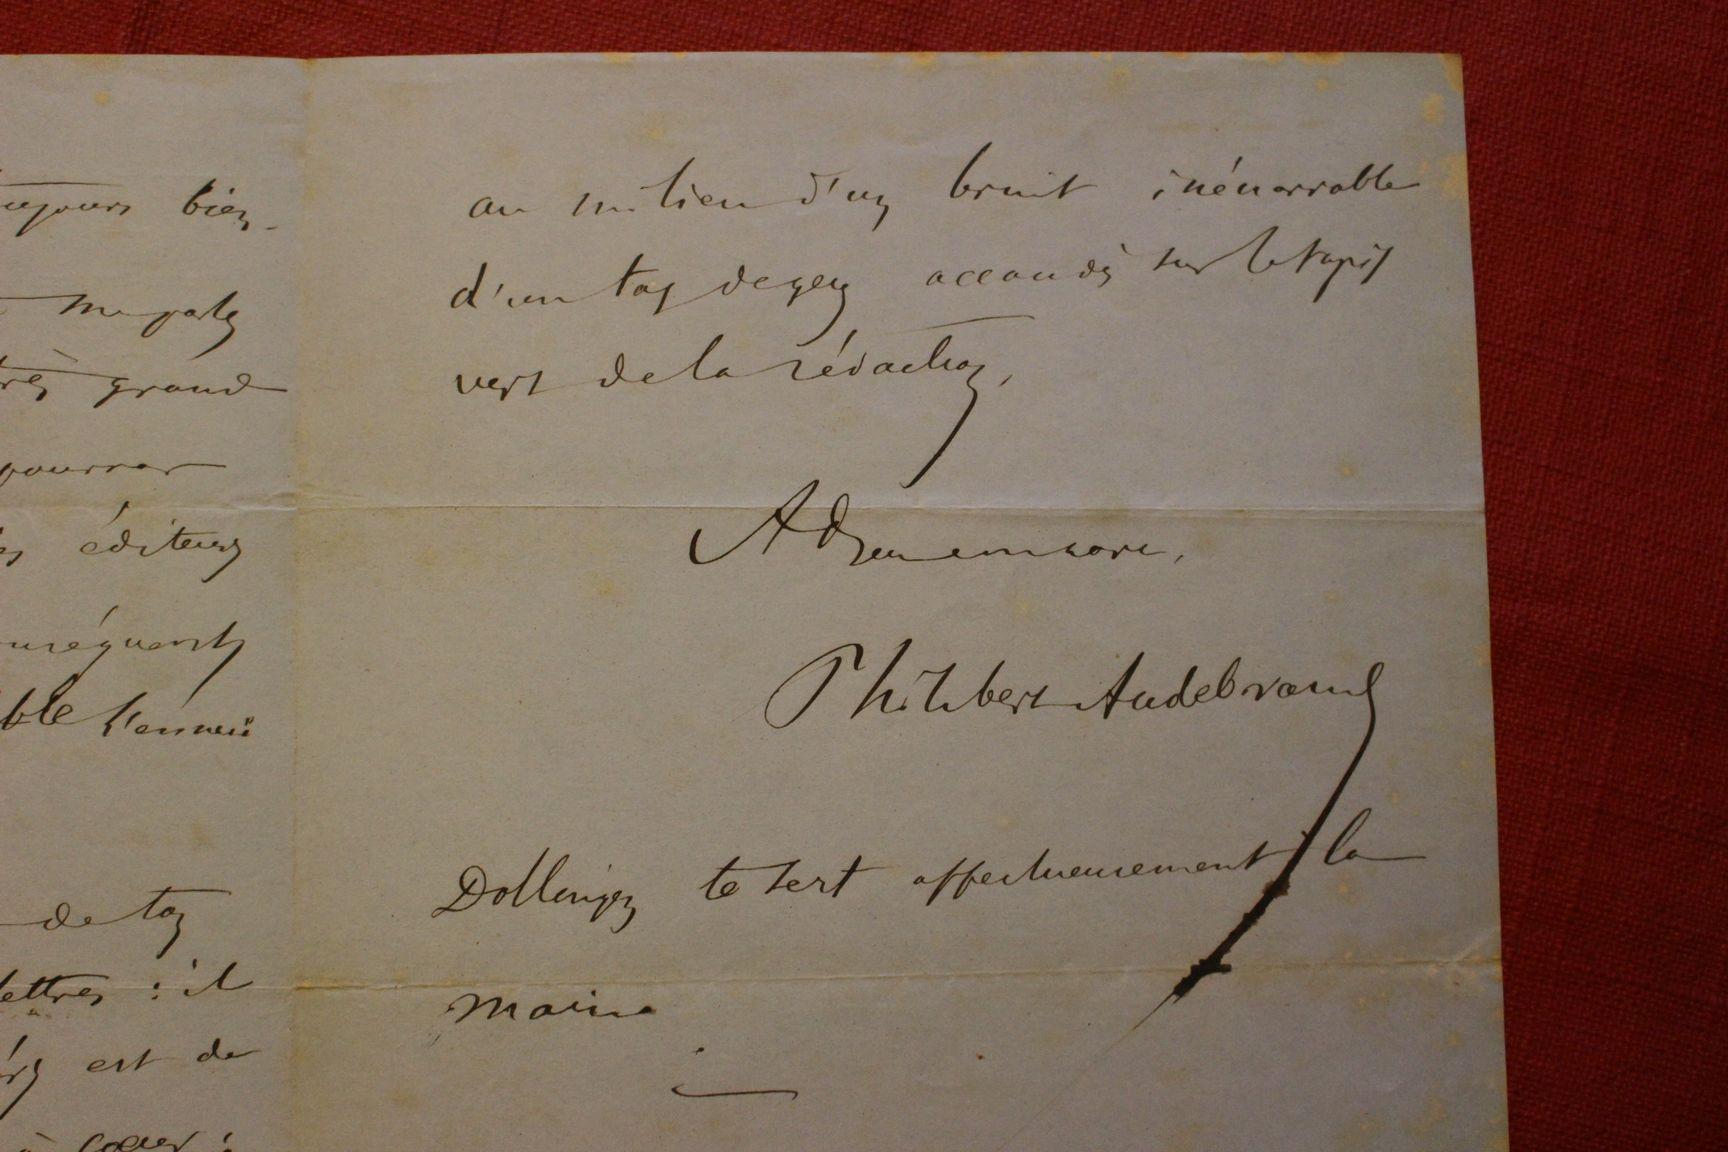 toujours bien
me parle
très grand
pourrar
éditeurs
conséquents
ble l'ennui
de toy
lettres : il
est de
à coeur :
au milieu d'un bruit inénarrable
d'un tas de gens accoudés sur le tapis
vert de la rédaction,
Philibert Audebrand
Dollingen te sert affectueusement la
main